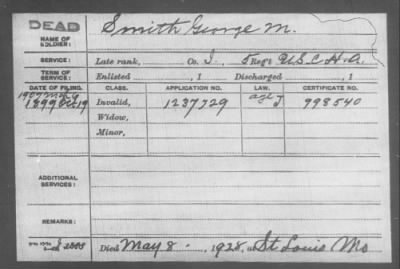 DEAD
NAME OF SOLDIER: Smith George M.
SERVICE: Late rank, Co. I, 5 Reg't U.S.C.H.A.
TERM OF SERVICE: Enlisted , 1 Discharged , 1
DATE OF FILING. CLASS. APPLICATION NO. LAW. CERTIFICATE NO.
1907 age
1899 Invalid, 1237729 J 998540
Widow,
Minor,
ADDITIONAL SERVICES:
REMARKS:
Died May 8 , 1928, at St Louis Mo